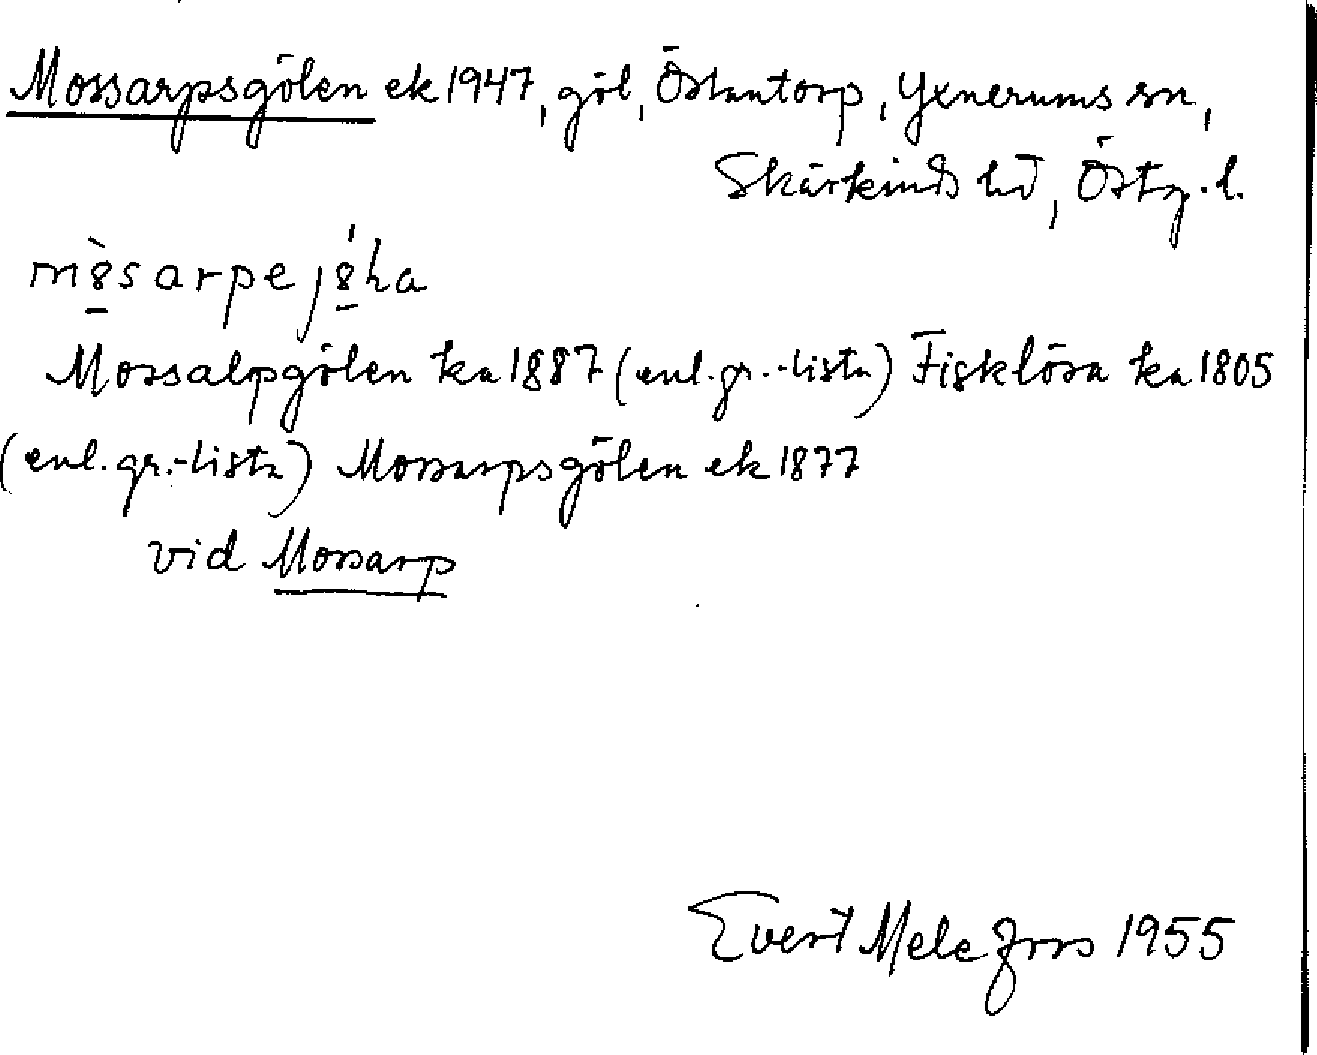 Mossarpsgölen ek 1947, göl, Östantorp, Yxnerums sn,
Skärkinds hd, Östg. l.
m8̀sarpej8́ha
Mossalpgölen ka 1887 (enl. gr.-lista) Fisklösa ka 1805
(enl. gr.-lista) Mossarpsgölen ek 1877
vid Mossarp
Evert Melefors 1955